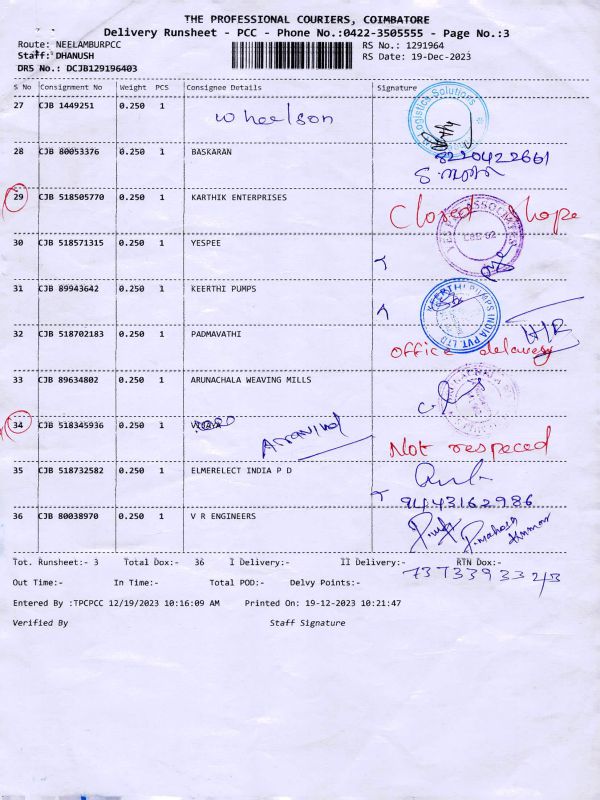 THE PROFESSIONAL COURIERS, COIMBATORE
Delivery Runsheet - PCC - Phone No.:0422-3505555 - Page No.:3
Route: NEELAMBURPCC RS No.: 1291964
Staff: DHANUSH RS Date: 19-Dec-2023
DRS No.: DCJB129196403
S No Consignment No Weight PCS Consignee Details Signature
27 CJB 1449251 0.250 1 Wheelson
Logistics Solutions
28 CJB 80053376 0.250 1 BASKARAN 8220422661
29 CJB 518505770 0.250 1 KARTHIK ENTERPRISES Closed shope
30 CJB 518571315 0.250 1 YESPEE
31 CJB 89943642 0.250 1 KEERTHI PUMPS
KEERTHI PUMPS INDIA PVT. LTD
32 CJB 518702183 0.250 1 PADMAVATHI office delavery H/R
33 CJB 89634802 0.250 1 ARUNACHALA WEAVING MILLS
34 CJB 518345936 0.250 1 Aravind Not respeced
35 CJB 518732582 0.250 1 ELMERELECT INDIA P D
9443162986
36 CJB 80038970 0.250 1 V R ENGINEERS P.mahesh Kumar
Tot. Runsheet:- 3 Total Dox:- 36 I Delivery:- II Delivery:- RTN Dox:-
Out Time:- In Time:- Total POD:- Delvy Points:-
Entered By :TPCPCC 12/19/2023 10:16:09 AM Printed On: 19-12-2023 10:21:47
Verified By Staff Signature